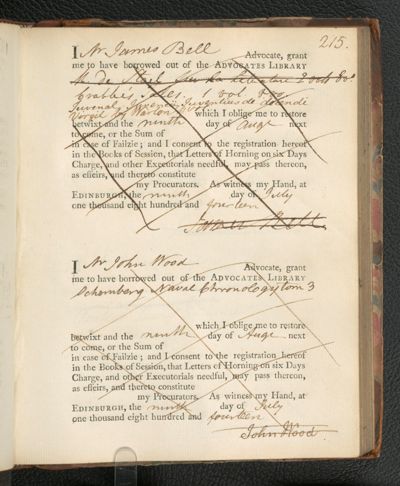 215.
I Mr James Bell Advocate, grant
me to have borrowed out of the ADVOCATES LIBRARY
M de Stael Sur la Litterature 2 vols 8vo
Crabbes Tales. 1 vol 8vo
Juvenal
Virgil by Warton which I oblige me to restore
betwixt and the ninth day of Augt next
to come, or the Sum of
in case of Failzie; and I consent to the registration hereof
in the Books of Session, that Letters of Horning on six Days
Charge, and other Executorials needful, may pass thereon,
as effeirs, and thereto constitute
my Procurators. As witness my Hand, at
EDINBURGH, the ninth day of July
one thousand eight hundred and fourteen
James Bell
I Mr John Wood Advocate, grant
me to have borrowed out of the ADVOCATES LIBRARY
Schomberg Naval Chronology tom 3
which I oblige me to restore
betwixt and the ninth day of Augt next
to come, or the Sum of
in case of Failzie; and I consent to the registration hereof
in the Books of Session, that Letters of Horning on six Days
Charge, and other Executorials needful, may pass thereon,
as effeirs, and thereto constitute
my Procurators. As witness my Hand, at
EDINBURGH, the ninth day of July
one thousand eight hundred and fourteen
John Wood